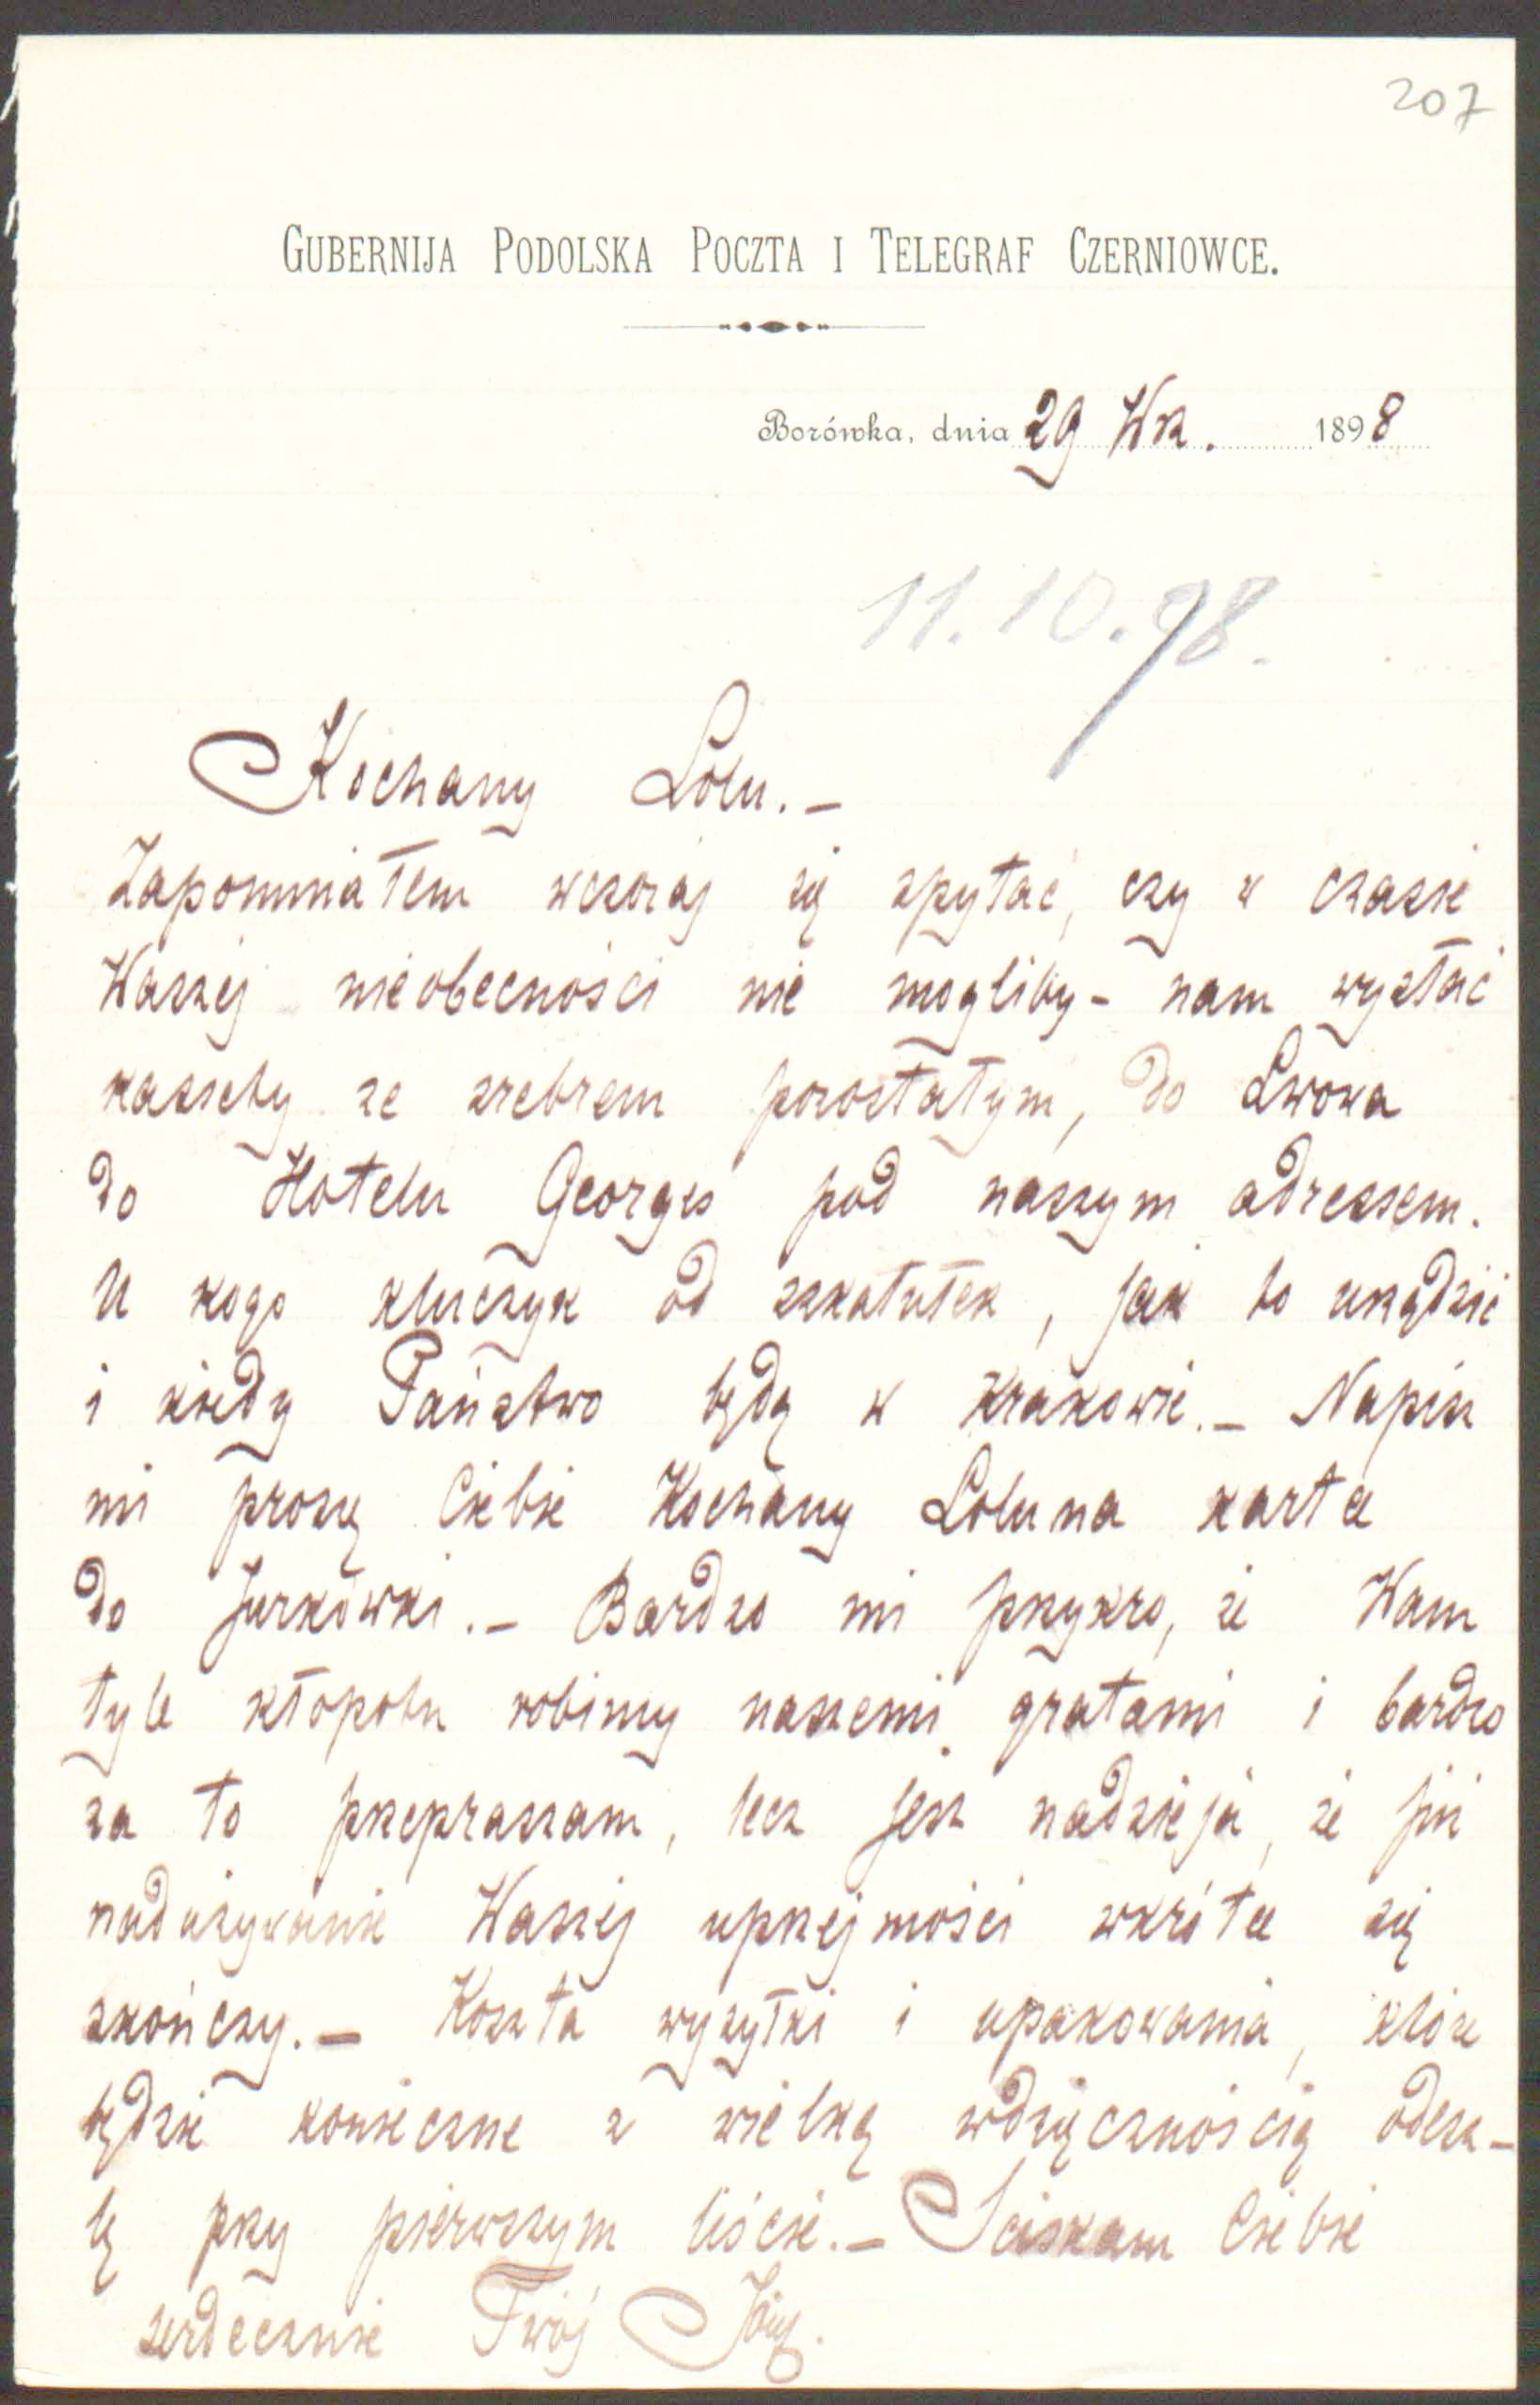 207
GUBERNIJA PODOLSKA POCZTA I TELEGRAF CZERNIOWCE.
Borówka, dnia 29 Wrz. 1898
11.10.98.
Kochany Lolu. –
Zapomniałem wczoraj się spytać, czy w czasie
Waszej nieobecności nie mogliby – nam wysłać
kassety ze srebrem pozostałym, do Lwowa
do Hotelu Georges pod naszym adressem.
U kogo kluczyk od szkatułek, jak to urządzić
i kiedy Państwo będą w Krakowie. – Napisz
mi proszę Ciebie Kochany Lolu na kartce
do Jurkówki. – Bardzo mi przykro, że Wam
tyle kłopotu robimy naszemi gratami i bardzo
za to przepraszam, lecz jest nadzieja, że już
nadużywanie Waszej uprzejmości wkrótce się
skończy. – Koszta wysyłki i upakowania, które
będzie konieczne z wielką wdzięcznością odesz-
lę przy pierwszym liście. – Ściskam Ciebie
serdecznie Twój